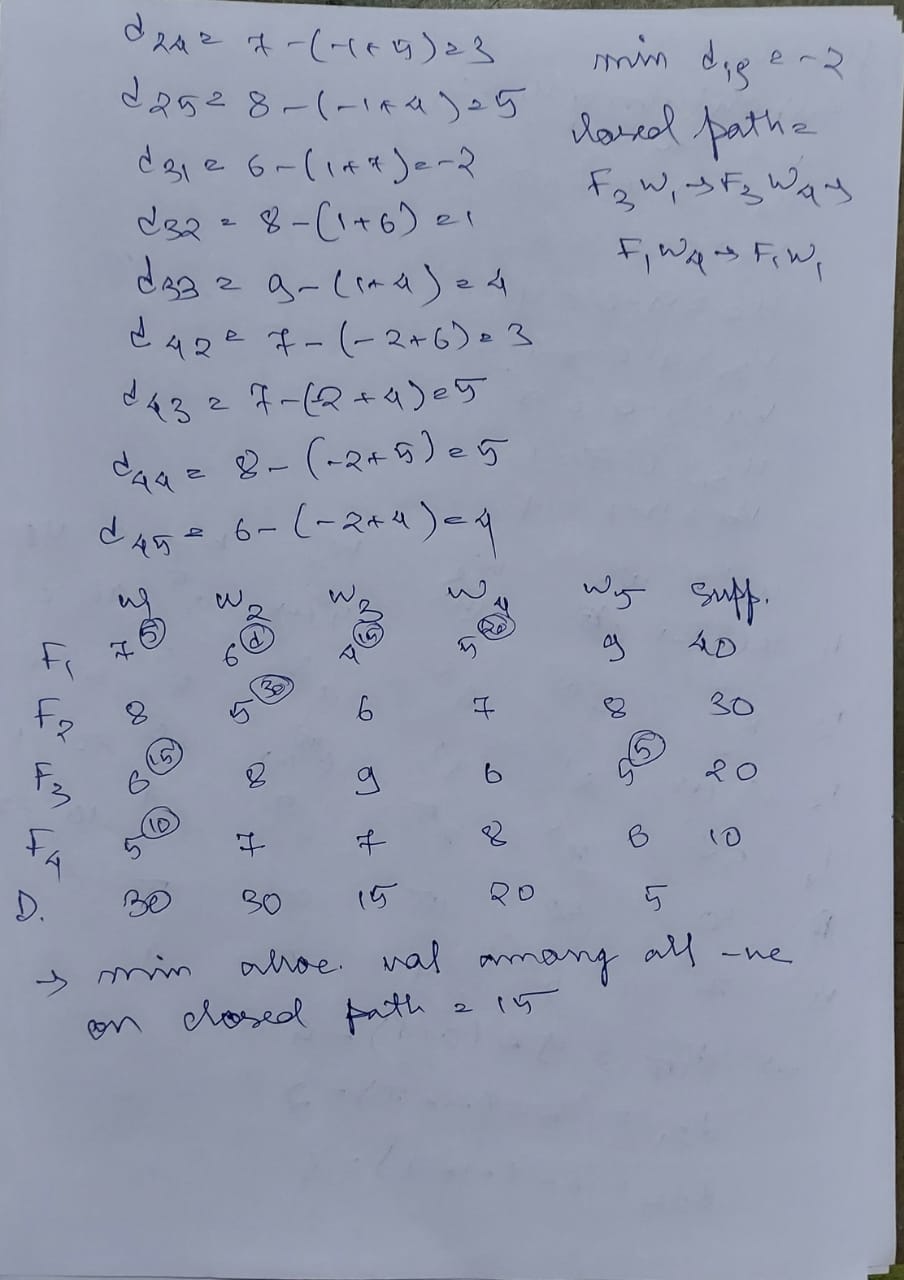 d24 = 7-(-1+5)=3
d25 = 8-(-1+4)=5
d31 = 6-(1+7)=-2
d32 = 8-(1+6)=1
d33 = 9-(1+4)=4
d42 = 7-(-2+6)=3
d43 = 7-(-2+4)=5
d44 = 8-(-2+5)=5
d45 = 6-(-2+4)=4
min dij = -2
closed path =
F3W1→F3W4→
F1W4→F1W1
W1 W2 W3 W4 W5 Supp.
F1 7(5) 6(d) 4(15) 5(20) 9 40
F2 8 5(30) 6 7 8 30
F3 6(15) 8 9 6 5(5) 20
F4 5(10) 7 7 8 6 10
D. 30 30 15 20 5
→ min alloc. val among all -ve
on closed path = 15